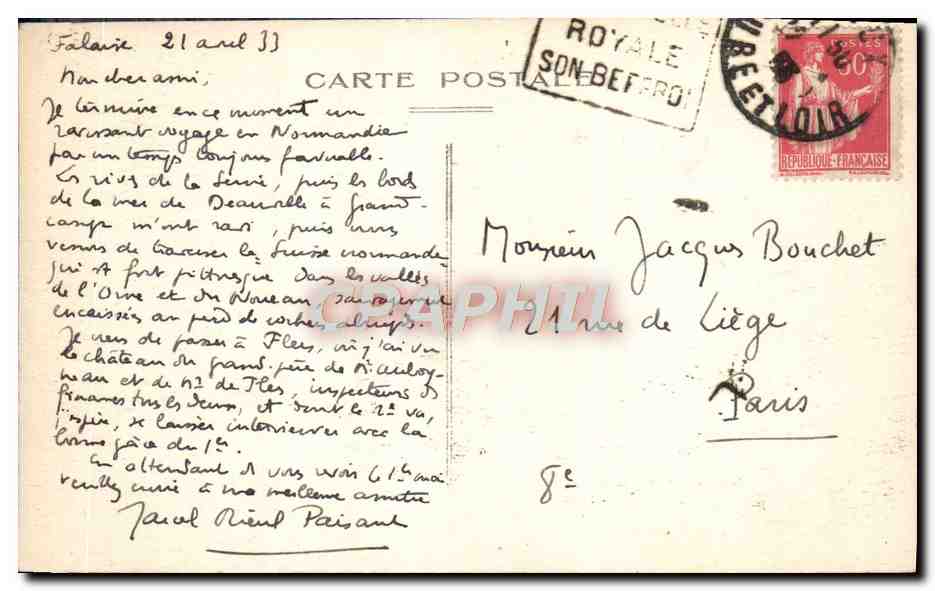 Falaise 21 avril 33
Mon cher ami,
Je termine en ce moment un
ravissant voyage en Normandie
par un temps toujours favorable.
Les rives de la Seine, puis les bords
de la mer de Deauville à Grand-
camp m'ont ravi, puis nous
venons de traverser la Suisse normande
qui est fort pittoresque dans les vallées
de l'Orne et du Noireau, sauvagement
encaissées au pied de roches abrupts.
Je viens de passer à Flers, où j'ai vu
le château du grand-père de
et de Mr de Flers, inspecteurs des
finances tous les deux, et dont le 2e va,
j'espère, se laisser interviewer avec la
bonne grâce du 1er.
En attendant de vous voir le 1er mai
veuillez croire à ma meilleure amitié
Paisant
CARTE POSTALE
ROYALE
SON BEFFROI
EURE ET LOIR
POSTES
50c
RÉPUBLIQUE FRANÇAISE
Monsieur Jacques Bouchet
21 rue de Liège
Paris
8e
CPAPHIL